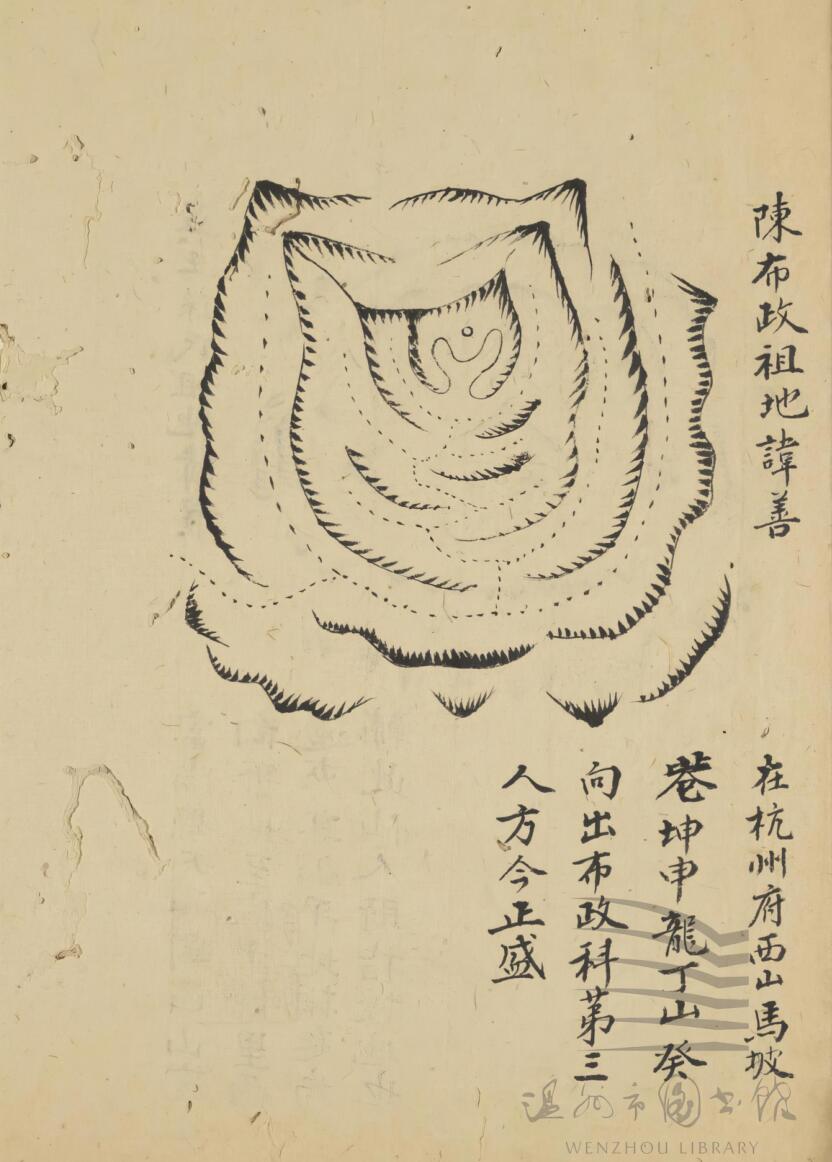 陳布政祖地諱善
在杭州府西山馬坡
巷坤申龍丁山癸
向出布政科第三
人方今正盛
温州市图书馆
WENZHOU LIBRARY